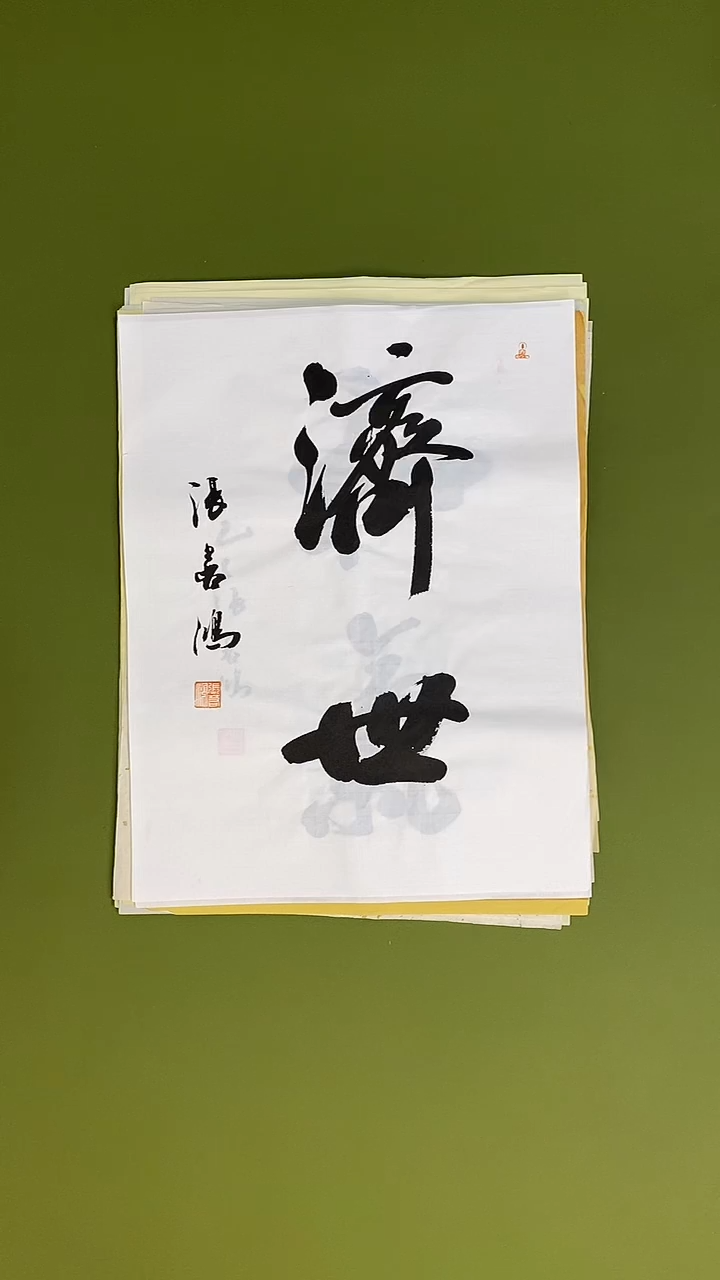 濟世
張喜鴻